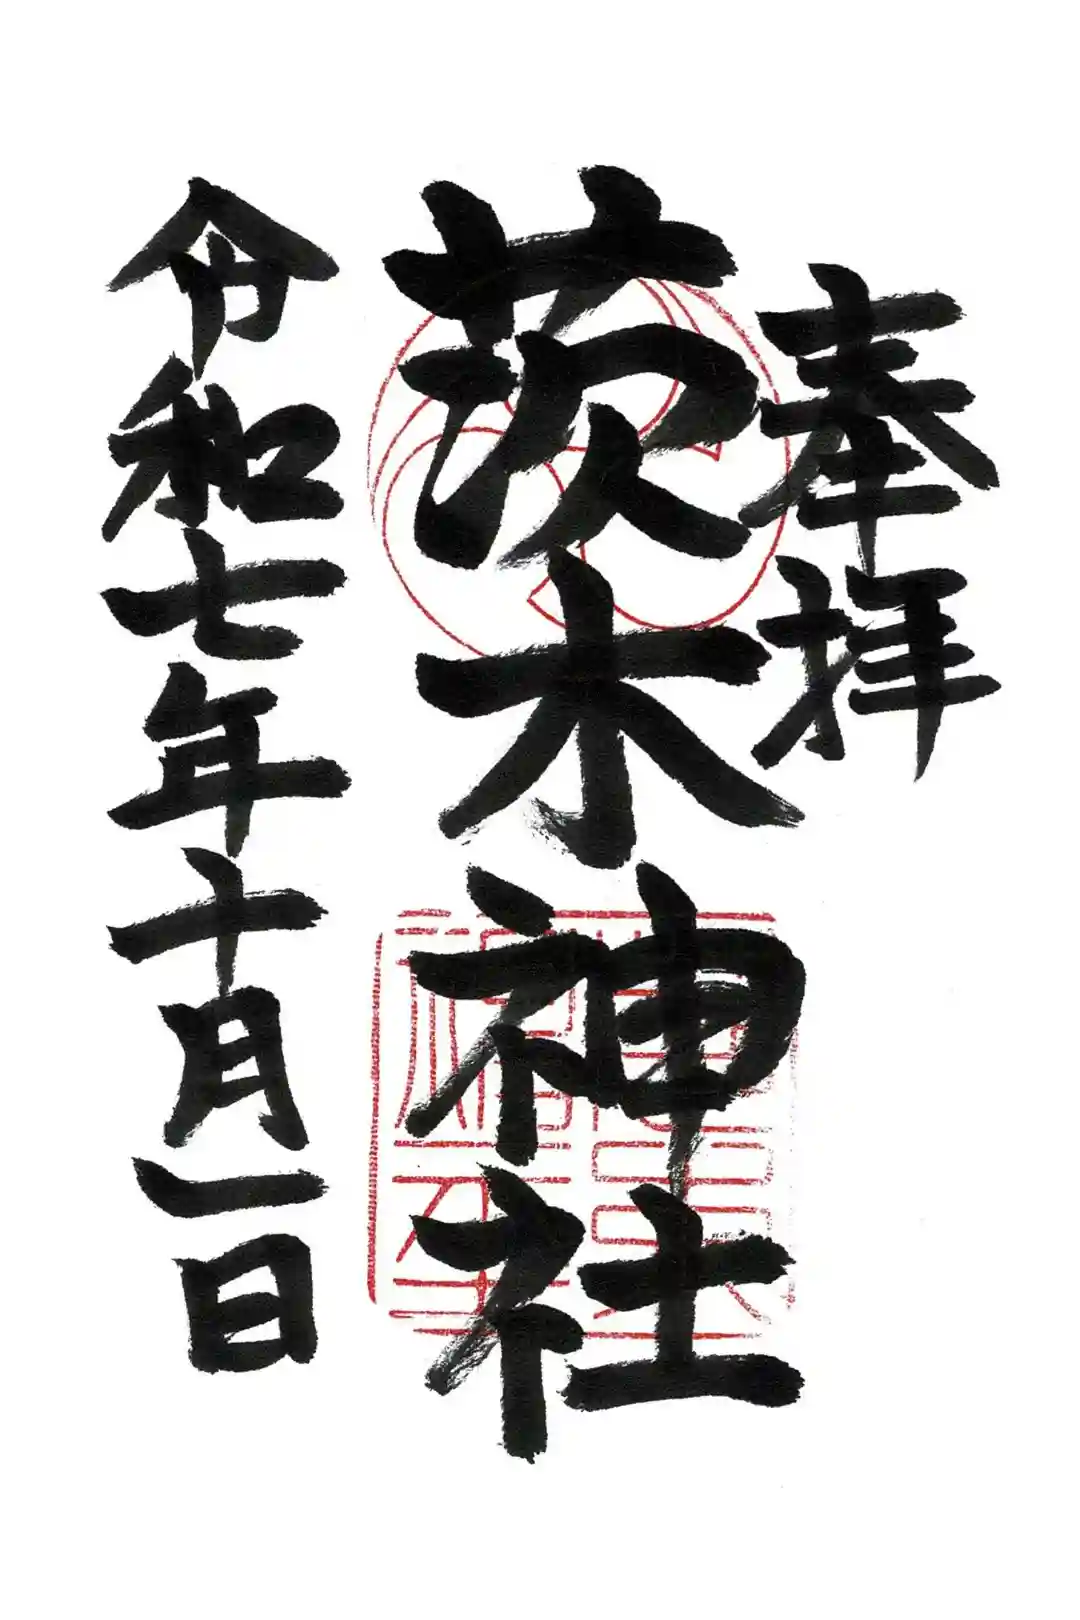 奉拝
茨木神社
令和七年十月一日